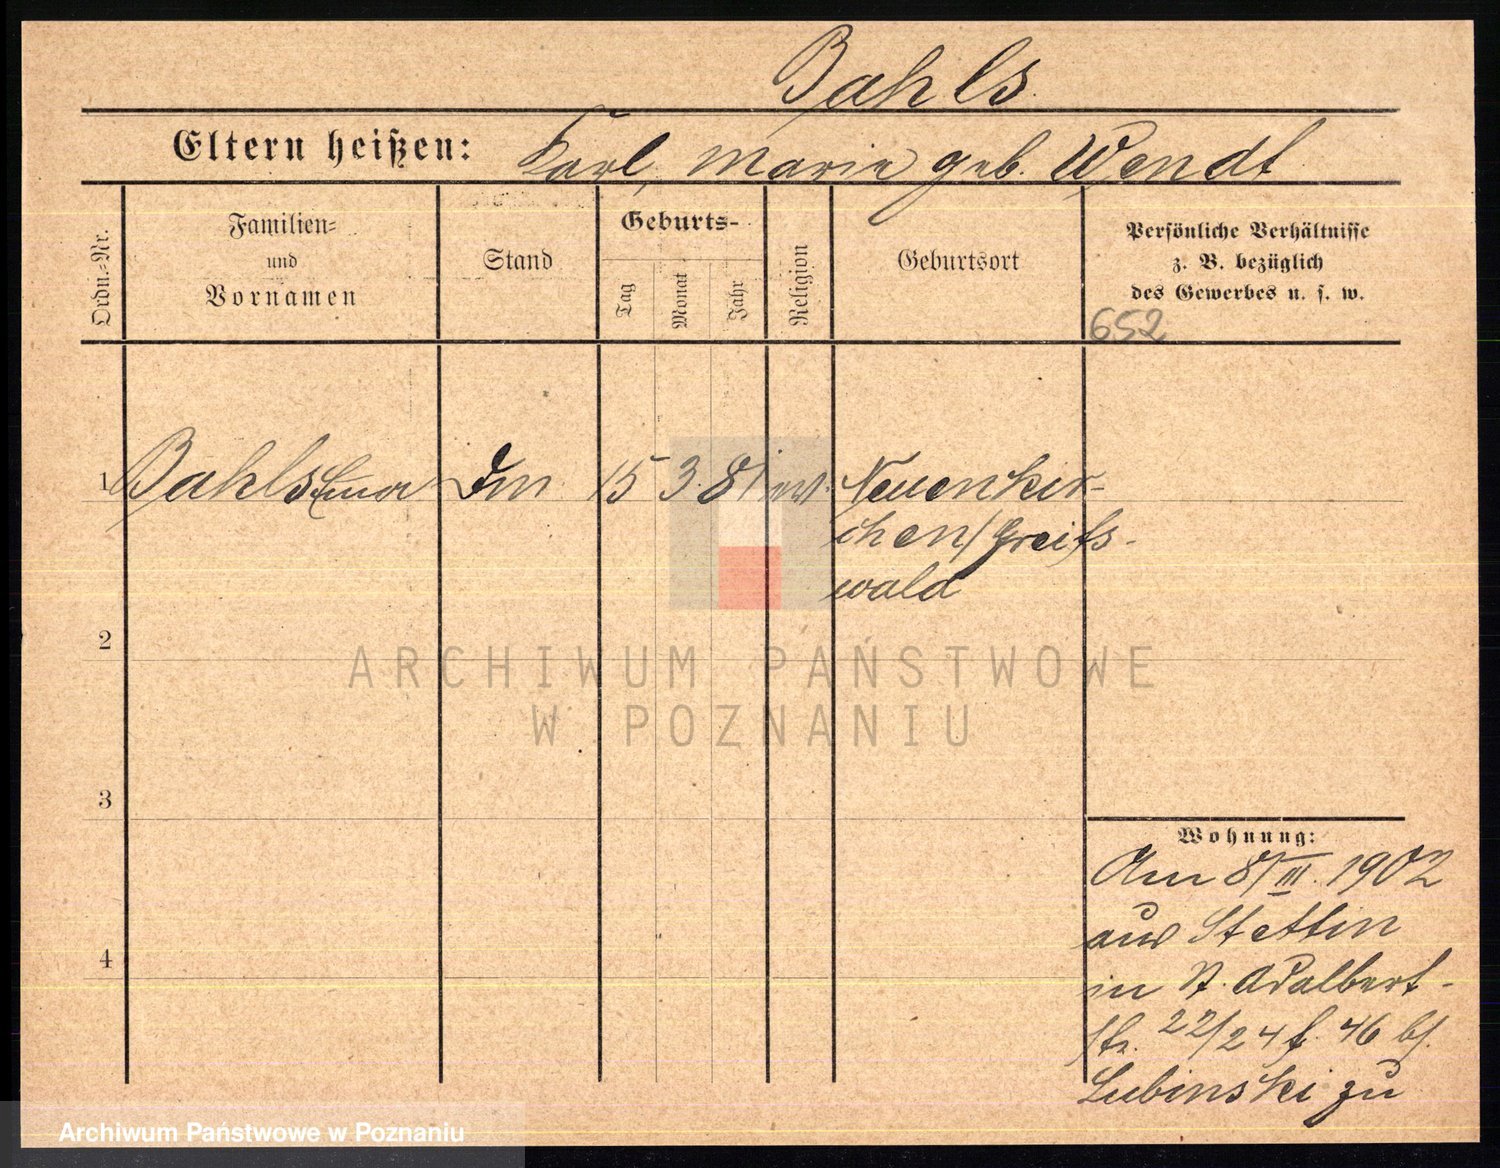 Bahls
Eltern heißen: Karl, Marie geb. Wendt
Ordn.-Nr.
Familien-
und
Vornamen
Stand
Geburts-
Tag
Monat
Jahr
Religion
Geburtsort
Persönliche Verhältnisse
z. B. bezüglich
des Gewerbes u. s. w.
652
1 Bahls 15 3. 81 ev. Neuenkir-
chen/Greifs-
wald
2
ARCHIWUM PAŃSTWOWE
W POZNANIU
3
Wohnung:
Am 8/III. 1902
aus Stettin
4
in St. Adalbert-
str. 22/24 f. 46 bj.
Lubinski zu
Archiwum Państwowe w Poznaniu